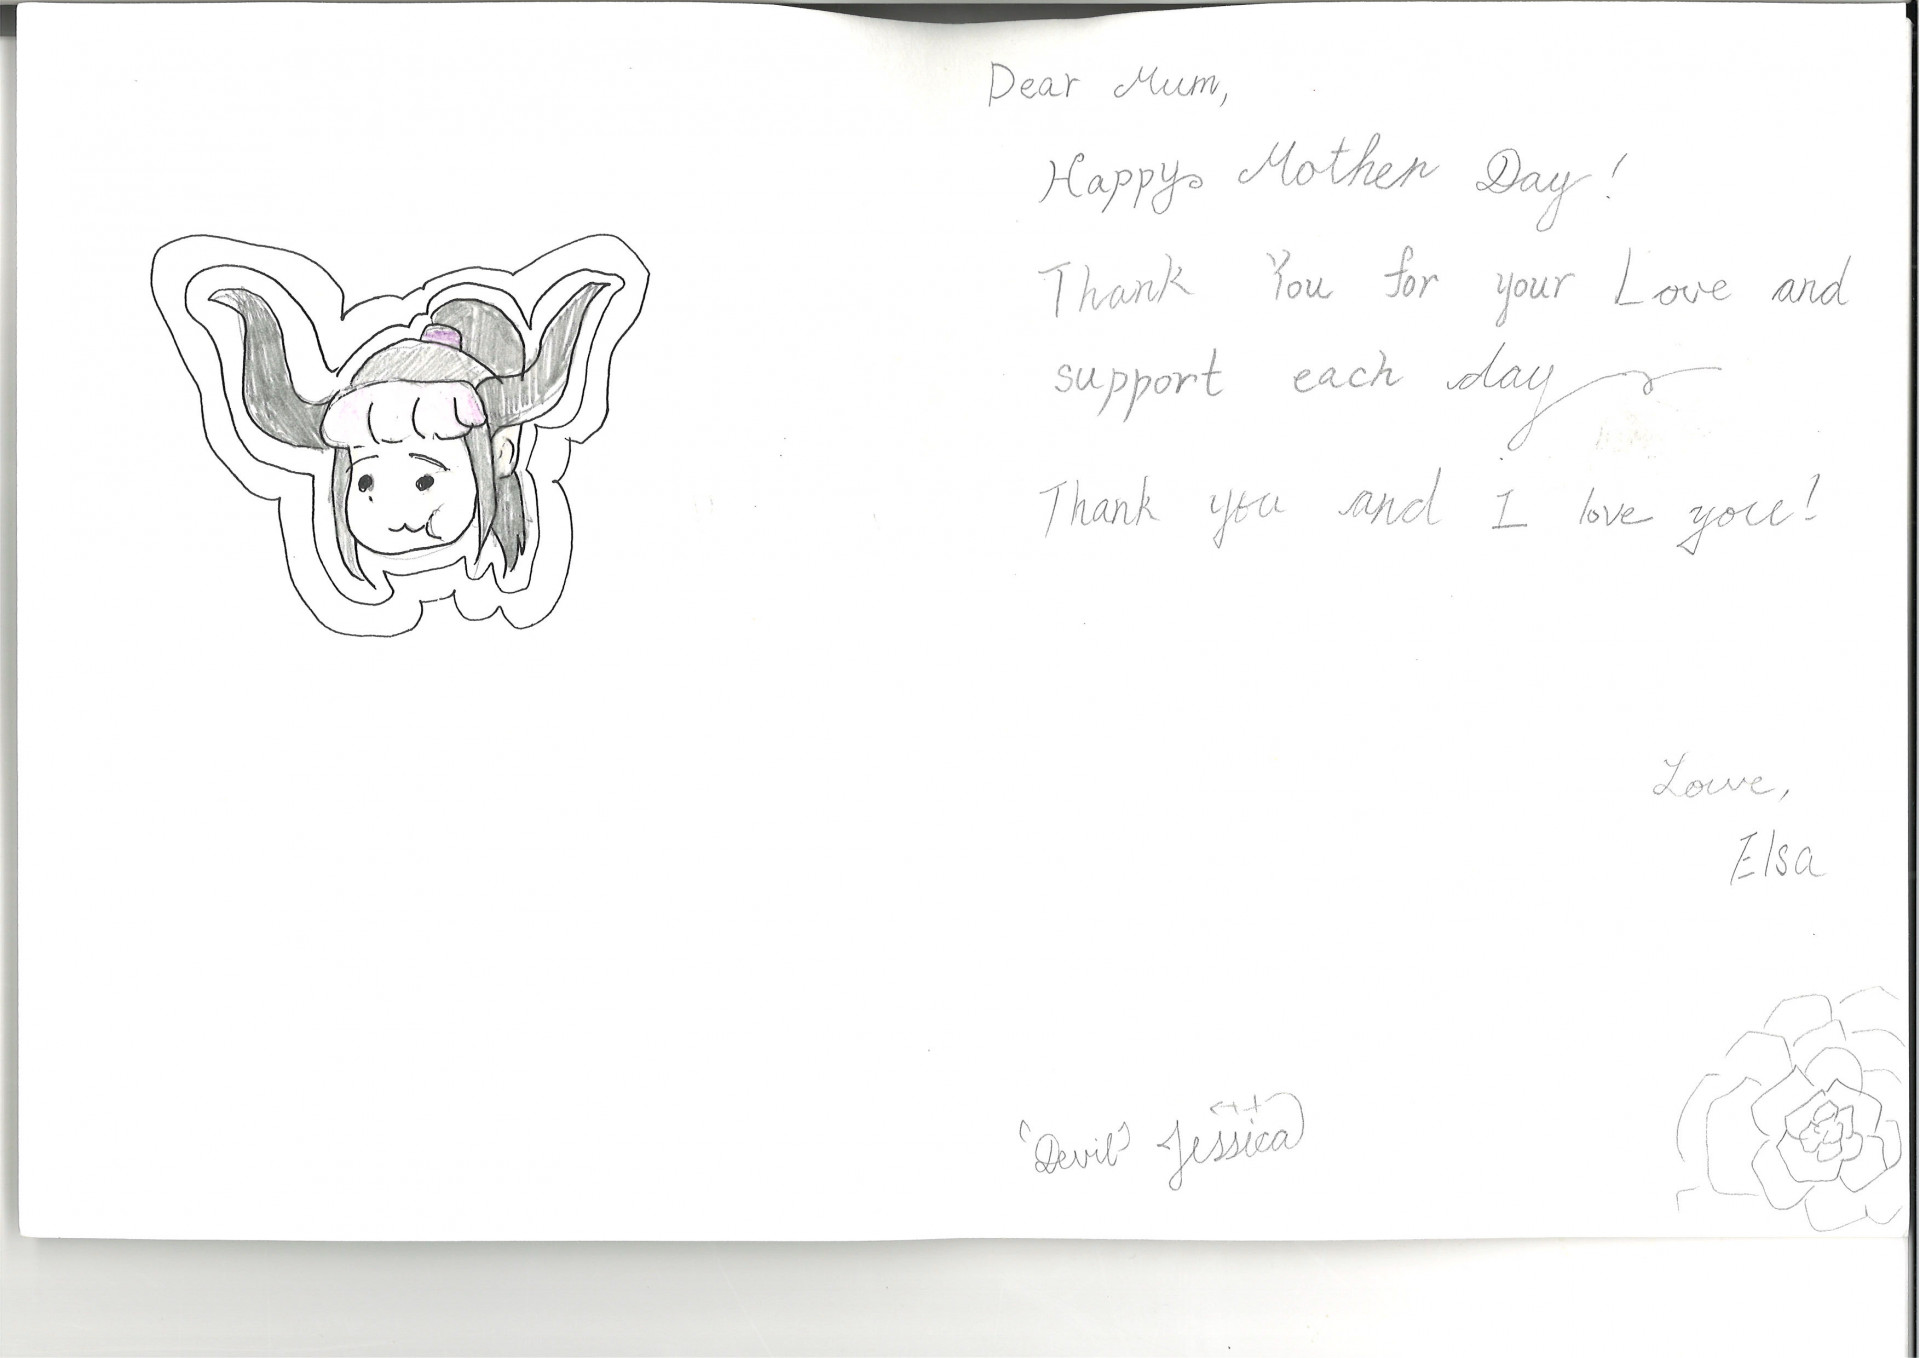 Dear Mum,
Happy Mother Day!
Thank You for your Love and
support each day
Thank you and I love you!
Love,
Elsa
'Devil' Jessica